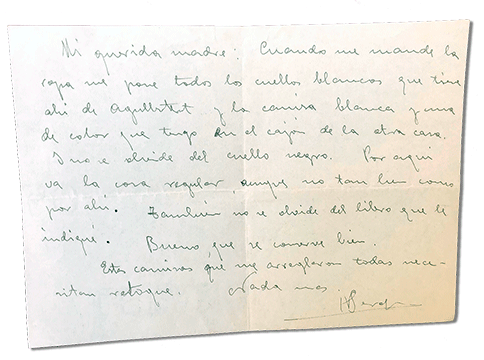 Mi querida madre: Cuando me mande la
ropa me pone todos los cuellos blancos que tiene
ahí de y la camisa blanca y una
de color que tengo en el cajón de la otra casa.
Y no se olvide del cuello negro. Por aquí
va la cosa regular, aunque no tan bien como
por ahí. También no se olvide del libro que le
indiqué. Bueno que se conserve bien.
Estas camisas que me arreglaron todas nece-
sitan retoque. Nada más